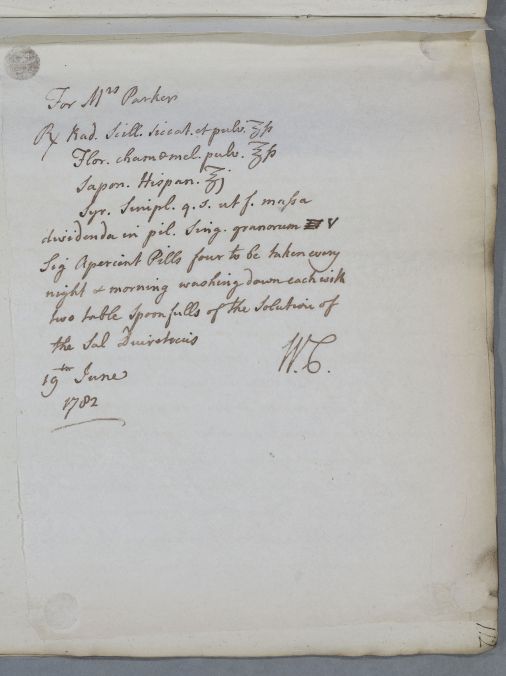 For Mrs Parker
℞ Rad. Scill. siccat. et pulv. ℥ſs
Flor. chamomel. pulv. ℥ſs
Sapon. Hispan. ℥j
Syr. Simpl. q.s. ut f. maſsa
dividenda in pil. Sing. granorum V
Sig Aperient Pills four to be taken every
night & morning washing down each with
two table spoonfulls of the Solution of
the Sal Diureticus
W.C.
19th June
1782